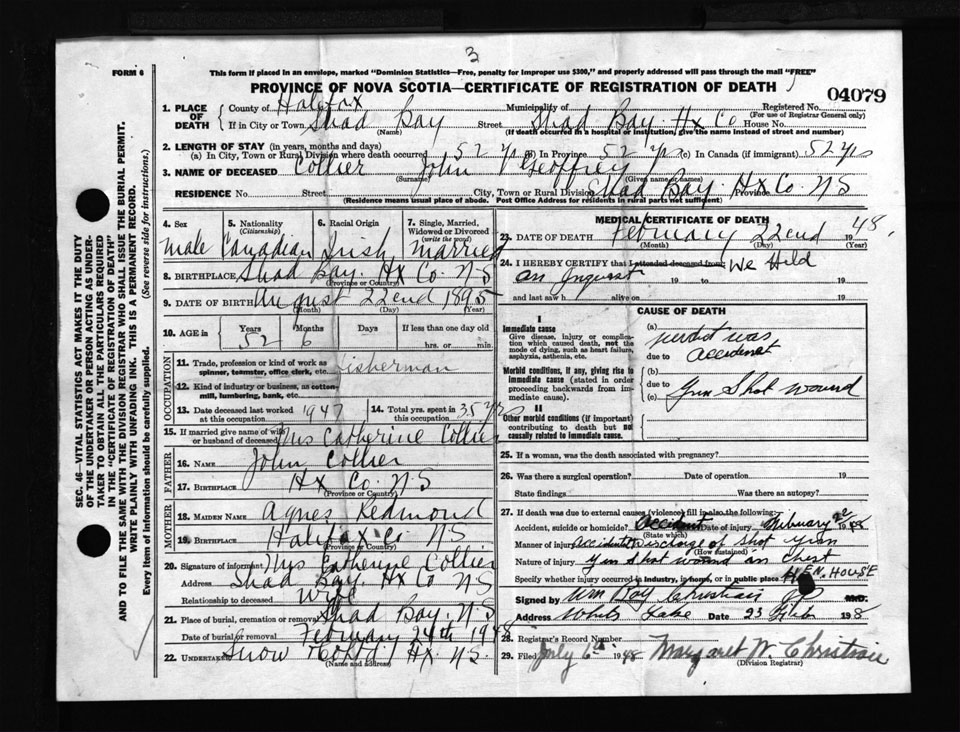 3
FORM 6
This form if placed in an envelope, marked "Dominion Statistics—Free, penalty for improper use $300," and properly addressed will pass through the mail "FREE"
PROVINCE OF NOVA SCOTIA—CERTIFICATE OF REGISTRATION OF DEATH
04079
1. PLACE OF DEATH { County of Halifax Municipality of Registered No.
(For use of Registrar General only)
If in City or Town Shad Bay Street Shad Bay Hx Co House No.
(Name) (If death occurred in a hospital or institution, give the name instead of street and number)
2. LENGTH OF STAY (in years, months and days)
(a) In City, Town or Rural Division where death occurred 52 yr (B) In Province 52 yrs (c) In Canada (if immigrant) 52 yrs
3. NAME OF DECEASED Collier John Geoffrey
(Surname) (Given name or names)
RESIDENCE No. Street City, Town or Rural Division Shad Bay Hx Co N S Province
(Residence means usual place of abode. Post Office Address for residents in rural parts not sufficient)
4. Sex 5. Nationality (Citizenship) 6. Racial Origin 7. Single, Married, Widowed or Divorced (write the word)
male Canadian Irish Married
8. BIRTHPLACE Shad Bay Hx Co. N-S
(Province or Country)
9. DATE OF BIRTH August 22cnd 1895
(Month) (Day) (Year)
10. AGE in Years Months Days If less than one day old
52 6 hrs. or min.
OCCUPATION
11. Trade, profession or kind of work as spinner, teamster, office clerk, etc. fisherman
12. Kind of industry or business, as cotton-mill, lumbering, bank, etc.
13. Date deceased last worked at this occupation 1947 14. Total yrs. spent in this occupation 35 yrs
15. If married give name of wife or husband of deceased Mrs Catherine Collier
FATHER
16. NAME John Collier
17. BIRTHPLACE Hx Co. N-S
(Province or Country)
MOTHER
18. MAIDEN NAME Agnes Redmond
19. BIRTHPLACE Halifax Co NS
(Province or Country)
20. Signature of informant Mrs Catherine Collier
Address Shad Bay Hx Co N S
Relationship to deceased Wife
21. Place of burial, cremation or removal Shad Bay, N-S
Date of burial or removal February 24th 1948
22. UNDERTAKER Snow Hx. N.S.
(Name and address)
MEDICAL CERTIFICATE OF DEATH
23. DATE OF DEATH February 22cnd 1948.
(Month) (Day) (Year)
24. I HEREBY CERTIFY that I attended deceased from We Held
an Inquest 19 to 19
and last saw h alive on 19
CAUSE OF DEATH
I
Immediate cause
Give disease, injury or complication which caused death, not the mode of dying, such as heart failure, asphyxia, asthenia, etc.
Morbid conditions, if any, giving rise to immediate cause (stated in order proceeding backwards from immediate cause).
II
Other morbid conditions (if important) contributing to death but not causally related to immediate cause.
(a) was
due to accident
(b)
due to
(c) Gun Shot wound
25. If a woman, was the death associated with pregnancy?
26. Was there a surgical operation? Date of operation 19
State findings Was there an autopsy?
27. If death was due to external causes (violence) fill in also the following:
Accident, suicide or homicide? Accident Date of injury February 22 1948
(State which)
Manner of injury Accidental Discharge of Shot Gun
(How sustained)
Nature of injury Gun Shot wound in Chest
Specify whether injury occurred in industry, in home, or in public place HEN HOUSE
Signed by Wm Roy Christian
Address Whites Lake Date 23 Feb 1948
28. Registrar's Record Number
29. Filed July 6th 1948 Margaret W. Christian
(Division Registrar)
SEC. 46—VITAL STATISTICS ACT MAKES IT THE DUTY OF THE UNDERTAKER OR PERSON ACTING AS UNDERTAKER TO OBTAIN ALL THE PARTICULARS REQUIRED IN THE "CERTIFICATE OF REGISTRATION OF DEATH" AND TO FILE THE SAME WITH THE DIVISION REGISTRAR WHO SHALL ISSUE THE BURIAL PERMIT.
WRITE PLAINLY WITH UNFADING INK. THIS IS A PERMANENT RECORD.
Every item of Information should be carefully supplied. (See reverse side for instructions.)